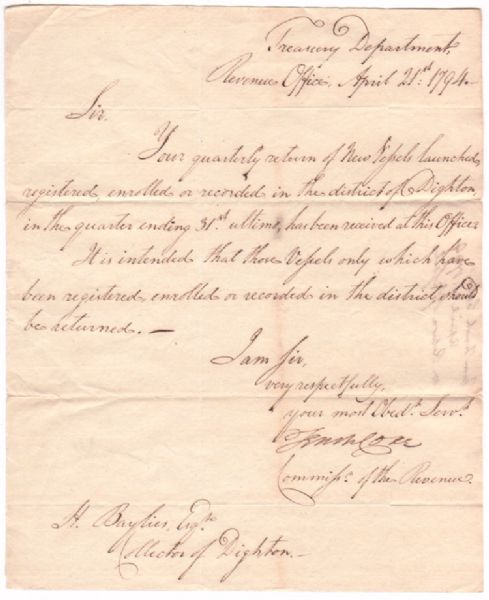 Treasury Department,
Revenue Office, April 21st. 1794
Sir.
Your quarterly return of New Vessels launched,
registered, enrolled or recorded in the district of Dighton,
in the quarter ending 31st. ultimo, has been received at this Office.
It is intended that those Vessels only which have
been registered, enrolled or recorded in the district, should
be returned. —
I am Sir,
very respectfully,
your most Obedt. Servt.
Tench Coxe
Commissr. of the Revenue.
H. Baylies, Esqre.
Collector of Dighton. —